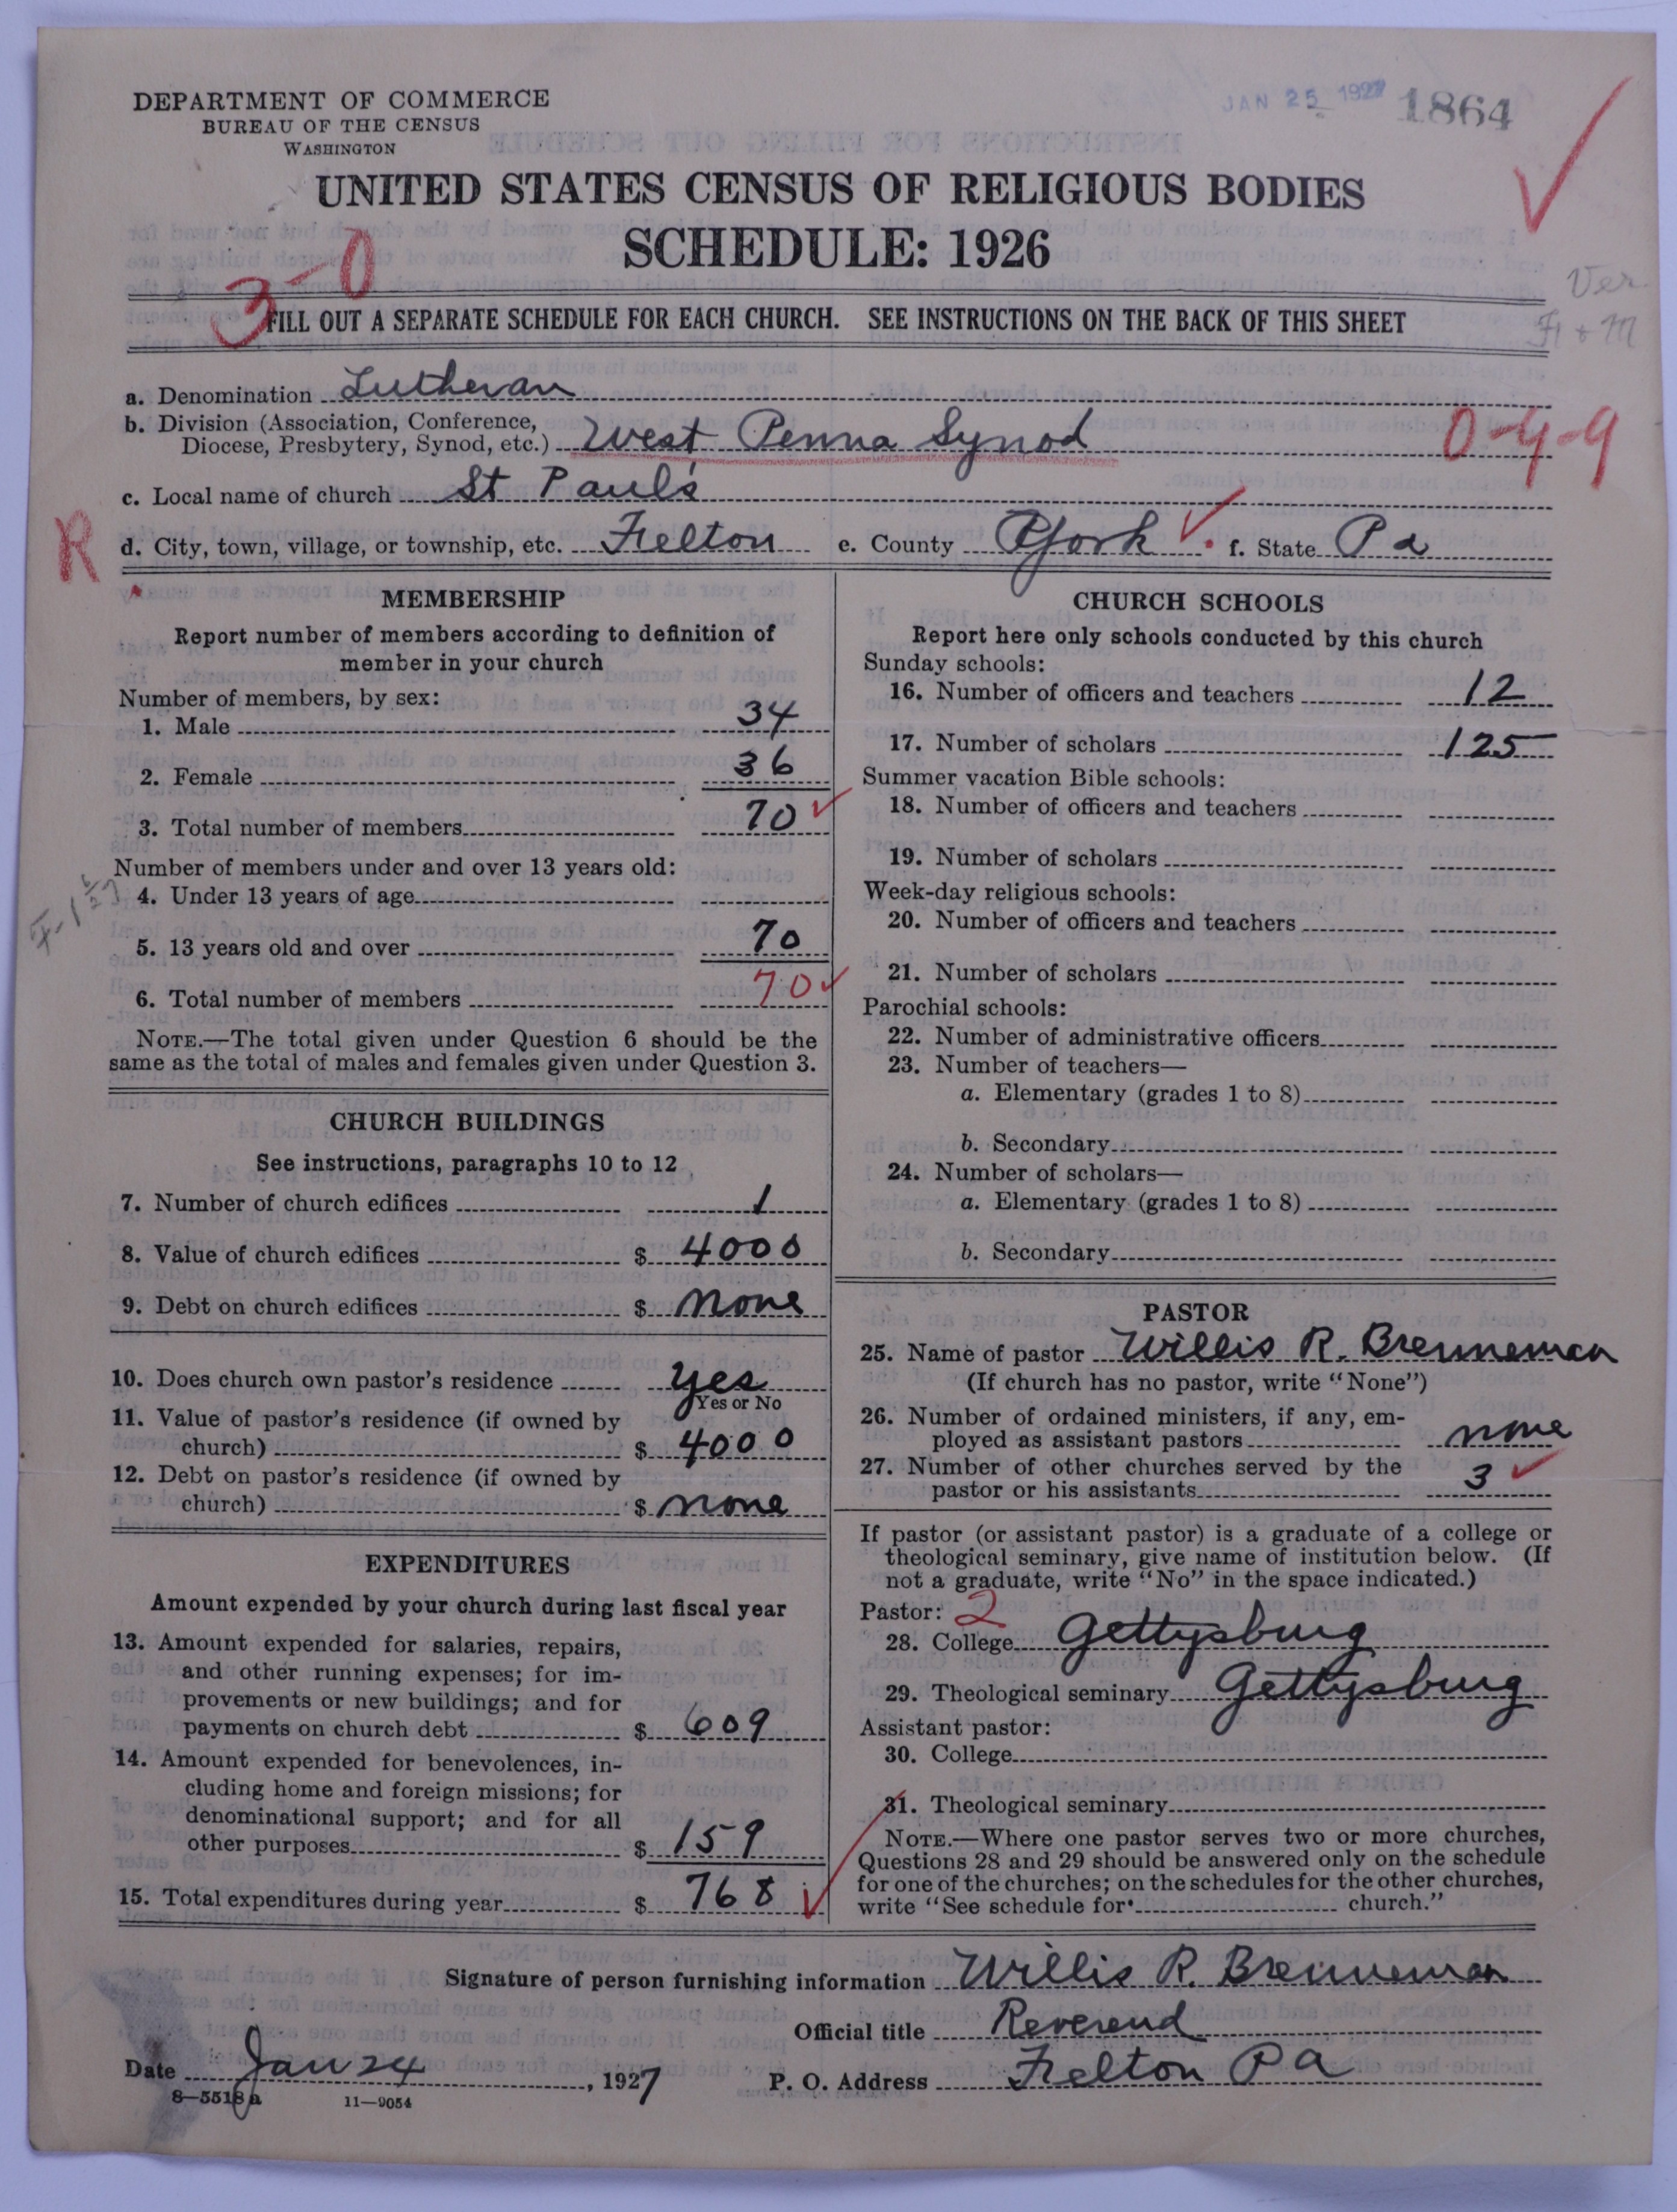 DEPARTMENT OF COMMERCE
BUREAU OF THE CENSUS
WASHINGTON
JAN 25 1927 1864
UNITED STATES CENSUS OF RELIGIOUS BODIES
SCHEDULE: 1926
3-0
Ver
FILL OUT A SEPARATE SCHEDULE FOR EACH CHURCH. SEE INSTRUCTIONS ON THE BACK OF THIS SHEET
a. Denomination Lutheran
b. Division (Association, Conference,
Diocese, Presbytery, Synod, etc.) West Penna Synod
0-4-9
c. Local name of church St Paul's
R
d. City, town, village, or township, etc. Felton e. County York f. State Pa
MEMBERSHIP
Report number of members according to definition of
member in your church
Number of members, by sex:
1. Male 34
2. Female 36
3. Total number of members 70
Number of members under and over 13 years old:
4. Under 13 years of age
5. 13 years old and over 70
6. Total number of members 70
NOTE.—The total given under Question 6 should be the
same as the total of males and females given under Question 3.
CHURCH BUILDINGS
See instructions, paragraphs 10 to 12
7. Number of church edifices 1
8. Value of church edifices $ 4000
9. Debt on church edifices $ none
10. Does church own pastor's residence yes
Yes or No
11. Value of pastor's residence (if owned by
church) $ 4000
12. Debt on pastor's residence (if owned by
church) $ none
EXPENDITURES
Amount expended by your church during last fiscal year
13. Amount expended for salaries, repairs,
and other running expenses; for im-
provements or new buildings; and for
payments on church debt $ 609
14. Amount expended for benevolences, in-
cluding home and foreign missions; for
denominational support; and for all
other purposes $ 159
15. Total expenditures during year $ 768
CHURCH SCHOOLS
Report here only schools conducted by this church
Sunday schools:
16. Number of officers and teachers 12
17. Number of scholars 125
Summer vacation Bible schools:
18. Number of officers and teachers
19. Number of scholars
Week-day religious schools:
20. Number of officers and teachers
21. Number of scholars
Parochial schools:
22. Number of administrative officers
23. Number of teachers—
a. Elementary (grades 1 to 8)
b. Secondary
24. Number of scholars—
a. Elementary (grades 1 to 8)
b. Secondary
PASTOR
25. Name of pastor Willis R. Brenneman
(If church has no pastor, write "None")
26. Number of ordained ministers, if any, em-
ployed as assistant pastors none
27. Number of other churches served by the
pastor or his assistants 3
If pastor (or assistant pastor) is a graduate of a college or
theological seminary, give name of institution below. (If
not a graduate, write "No" in the space indicated.)
Pastor: 2
28. College Gettysburg
29. Theological seminary Gettysburg
Assistant pastor:
30. College
31. Theological seminary
NOTE.—Where one pastor serves two or more churches,
Questions 28 and 29 should be answered only on the schedule
for one of the churches; on the schedules for the other churches,
write "See schedule for church."
Signature of person furnishing information Willis R. Brenneman
Official title Reverend
Date Jan 24, 1927 P. O. Address Felton Pa
8-5518a 11-9054